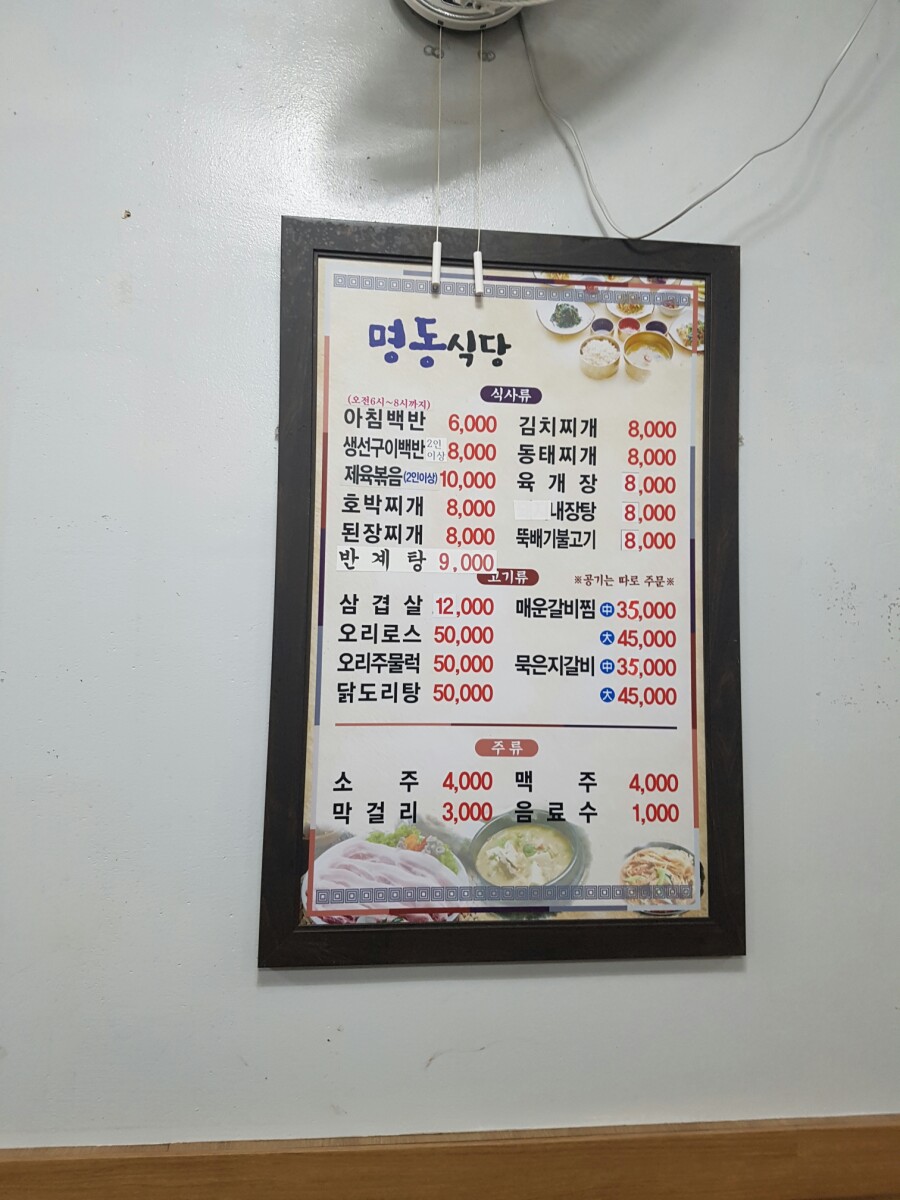 명동식당
식사류
(오전6시~8시까지)
아침백반 6,000 김치찌개 8,000
생선구이백반 2인이상 8,000 동태찌개 8,000
제육볶음(2인이상) 10,000 육개장 8,000
호박찌개 8,000 내장탕 8,000
된장찌개 8,000 뚝배기불고기 8,000
반계탕 9,000
고기류 ※공기는 따로 주문※
삼겹살 12,000 매운갈비찜 中 35,000
오리로스 50,000 大 45,000
오리주물럭 50,000 묵은지갈비 中 35,000
닭도리탕 50,000 大 45,000
주류
소주 4,000 맥주 4,000
막걸리 3,000 음료수 1,000